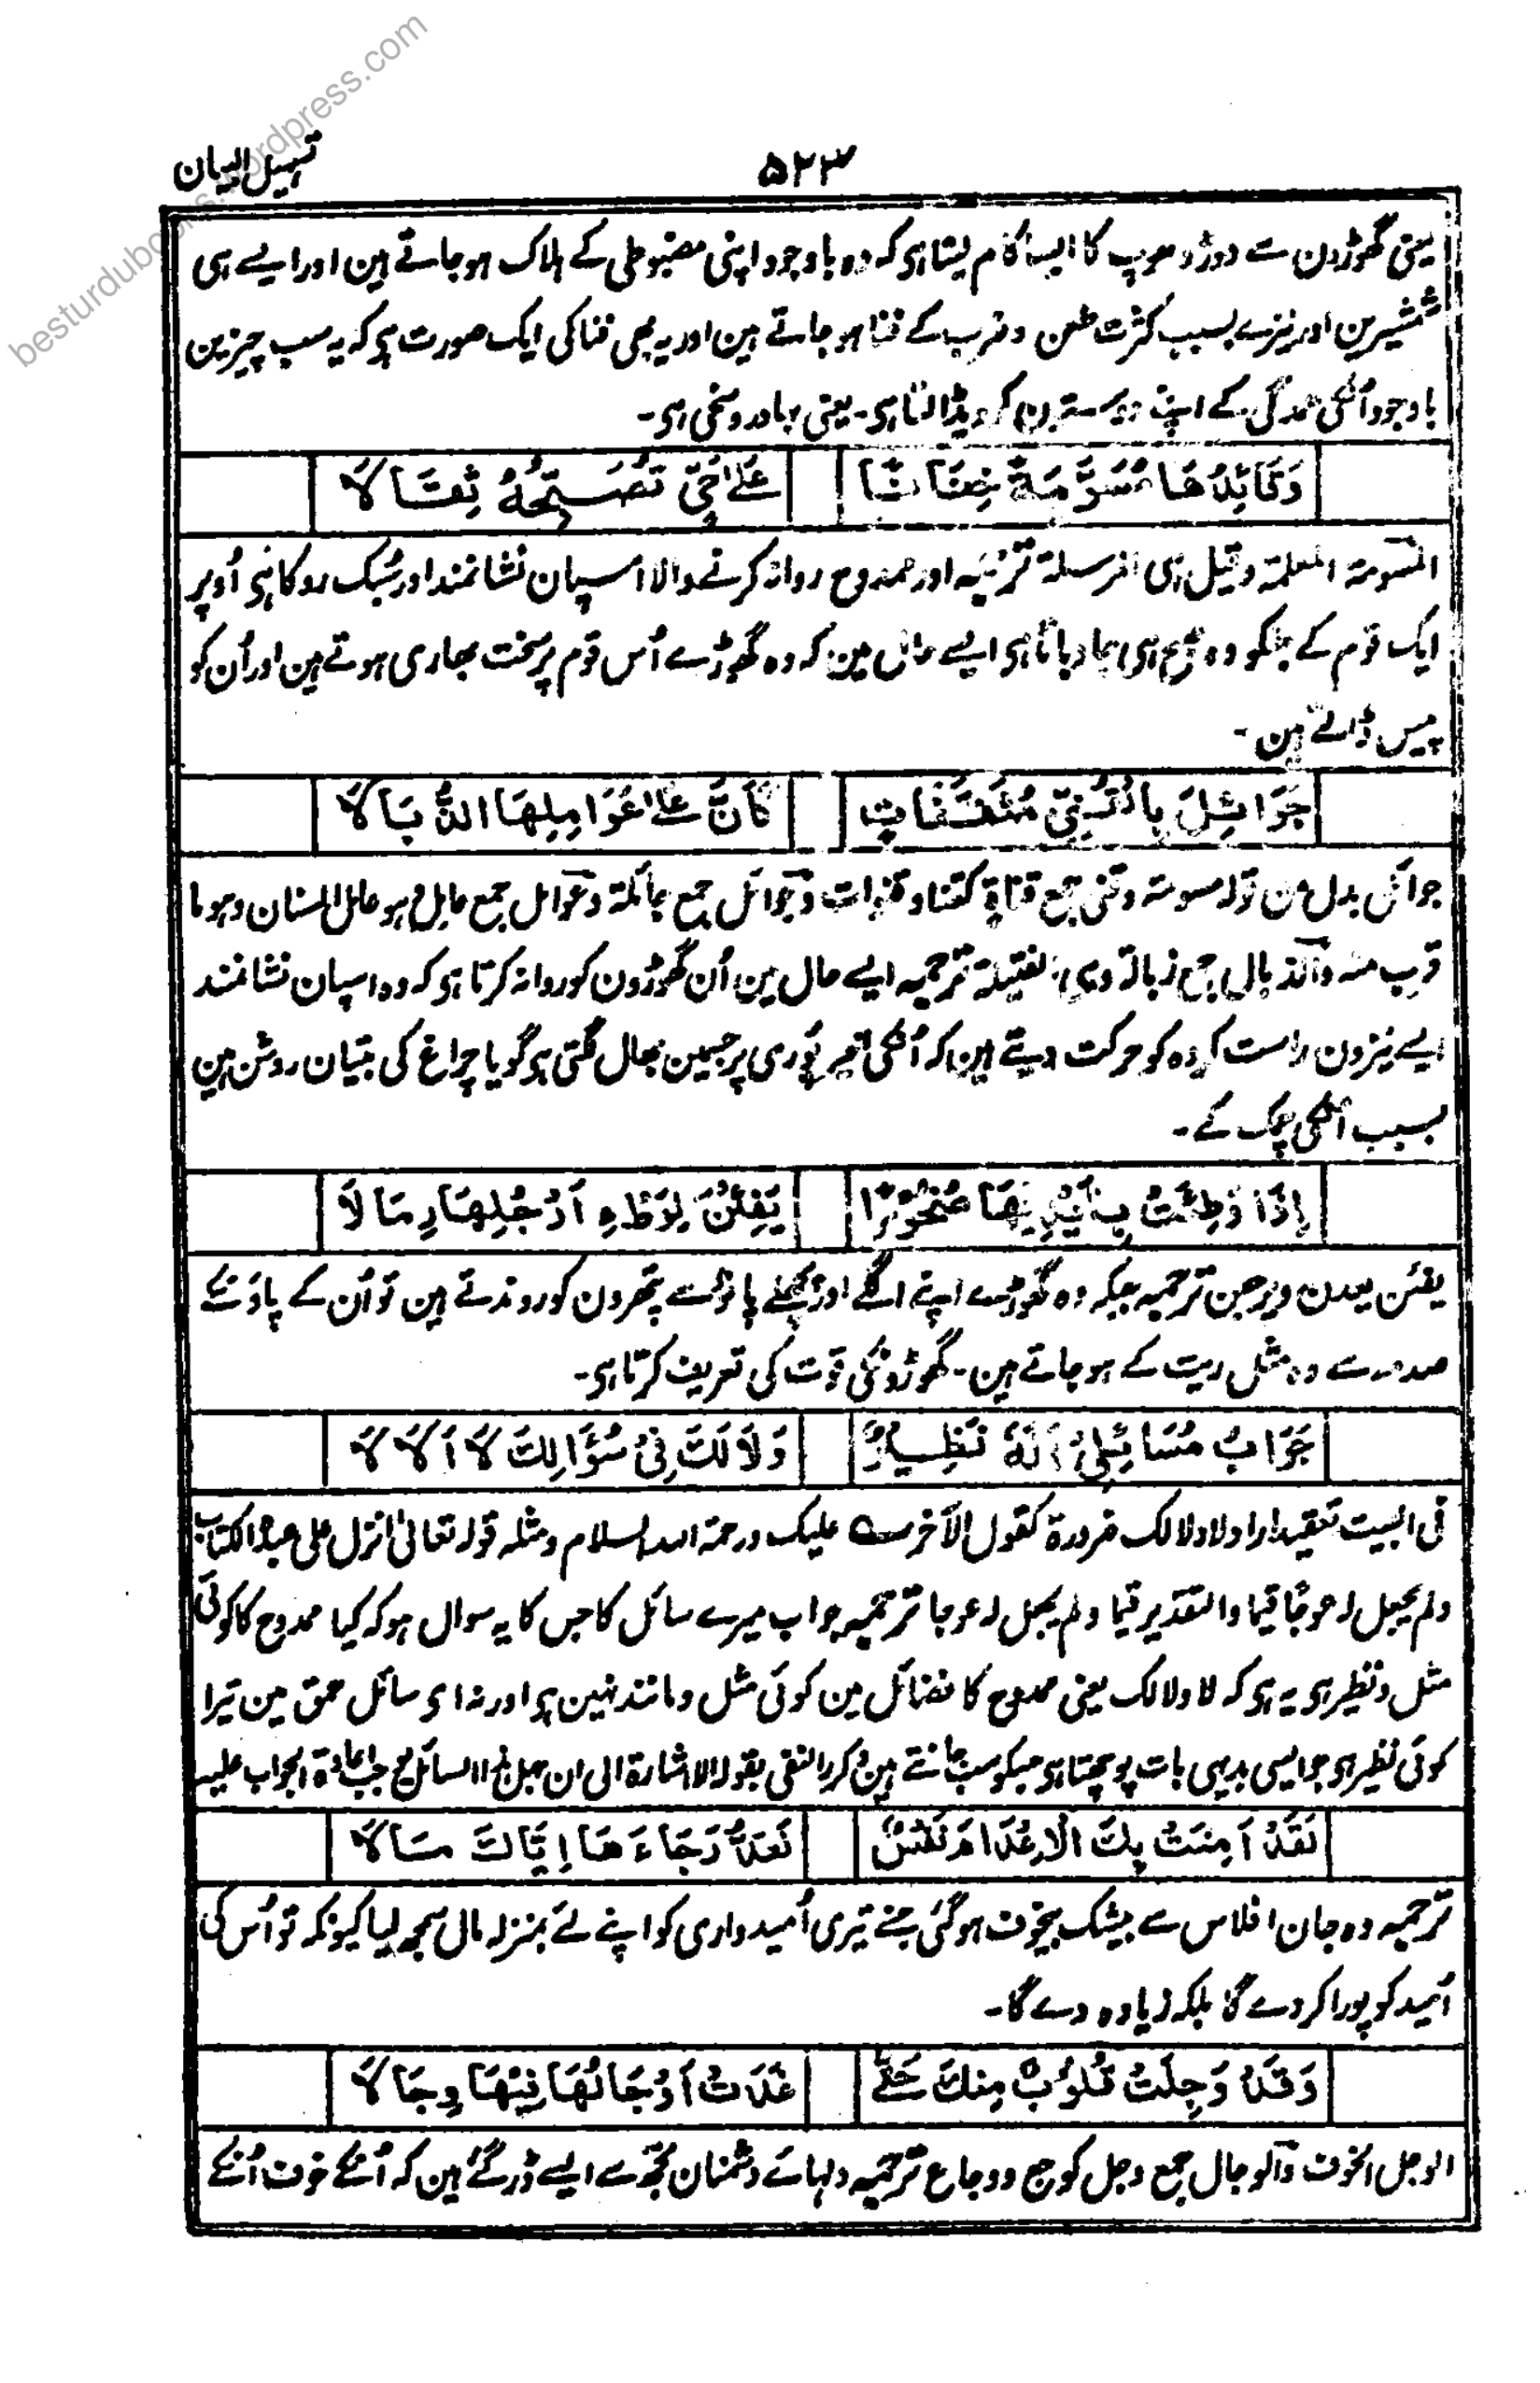 besturdubooks.wordpress.com
۵۲۳
تسہیل البیان
یعنی گھوڑون سے دوڑ دھوپ کا ایسا کام لیتا ہی کہ وہ باوجود اپنی مضبوطی کے ہلاک ہو جاتے ہین اور ایسے ہی
شمشیرین اور نیزے بسبب کثرت طعن و ضرب کے فنا ہو جاتے ہین اور یہ بھی فنا کی ایک صورت ہی کہ یہ سب چیزین
باوجود اُنکی عمدگی کے اپنے دوستون کو دیڈالتا ہی۔ یعنی بہادر و سخی ہی۔
وَقَائِدُهَا مُسَوَّمَةً خِفَافًا عَلٰى حَيٍّ تُصَبِّحُهُ ثِقَالَا
المسومۃ المعلمۃ وقیل ہی المرسلۃ ترجمہ اور ممدوح روانہ کرنے والا اسپان نشانمند اور سُبک رو کا ہی اُوپر
ایک قوم کے جنکو وہ صبح ہی جا دباتا ہی ایسے حال مین کہ وہ گھوڑے اُس قوم پر سخت بھاری ہوتے ہین اور اُن کو
پیس ڈالتے ہین۔
جَوَائِلَ بِالْقُنِيِّ مُثَقَّفَاتٍ كَأَنَّ عَلٰى عَوَامِلِهَا الذُّبَالَا
جوائل بدل من قولہ مسومۃ وقنی جمع قناۃ کقنا وقنوات وجوائل جمع جائلۃ وعوامل جمع عامل وہو عامل السنان وہو ما
قرب منہ والذبال جمع ذبالۃ وہی الفتیلۃ ترجمہ ایسے حال مین اُن گھوڑون کو روانہ کرتا ہی کہ وہ اسپان نشانمند
ایسے نیزون راست کردہ کو حرکت دیتے ہین کہ اُنکی پوری پر جسمین بھال لگتی ہی گویا چراغ کی بتیان روشن ہین
بسبب اُنکی چمک کے۔
إِذَا وَطِئَتْ بِأَيْدِيْهَا صُخُوْرًا يَفِئْنَ لِوَطْءِ أَرْجُلِهَا رِمَالَا
یفئن یعدن ویرجعن ترجمہ جبکہ وہ گھوڑے اپنے اگلے اور پچھلے پاؤن سے پتھرون کو روندتے ہین تو اُن کے پاؤنکے
صدمہ سے وہ مثل ریت کے ہو جاتے ہین۔ گھوڑونکی قوت کی تعریف کرتا ہی۔
جَوَابُ مُسَائِلِيْ أَلَهٗ نَظِيْرٌ وَلَا لَكَ فِيْ سُؤَالِكَ لَا أَلَا لَا
فی البیت تعقید اراد لا ولا لک ضرورۃ کقول الآخر ؎ علیک ورحمۃ اللہ السلام ومثلہ قولہ تعالیٰ انزل علی عبدہ الکتاب
ولم یجعل لہ عوجًا قیما والتقدیر قیما ولم یجعل لہ عوجا ترجمہ جواب میرے سائل کا جس کا یہ سوال ہو کہ کیا ممدوح کا کوئی
مثل و نظیر ہی یہ ہی کہ لا ولا لک یعنی ممدوح کا فضائل مین کوئی مثل و مانند نہین ہی اور نہ ای سائل حمق مین تیرا
کوئی نظیر ہی جو ایسی بدیہی بات پوچھتا ہی جسکو سب جانتے ہین وکرر النفی بقولہ الا اشارۃ الی ان جہل ہذا السائل یوجب اعادۃ الجواب علیہ
لَقَدْ أَمِنَتْ بِكَ الْإِعْدَامَ نَفْسٌ تَعُدُّ رَجَاءَهَا إِيَّاكَ مَالَا
ترجمہ وہ جان افلاس سے بیشک بیخوف ہو گئی جسنے تیری اُمیدواری کو اپنے لئے بمنزلہ مال سمجھ لیا کیونکہ تو اُس کی
اُمید کو پورا کر دے گا بلکہ زیادہ دے گا۔
وَقَدْ وَجِلَتْ قُلُوْبٌ مِنْكَ حَتّٰى غَدَتْ أَوْجَالُهَا فِيْهَا وِجَالَا
الوجل الخوف والوجال جمع وجل کوجع ووجاع ترجمہ دلہائے دشمنان تجھ سے ایسے ڈر گئے ہین کہ اُنکے خوف اُنکے